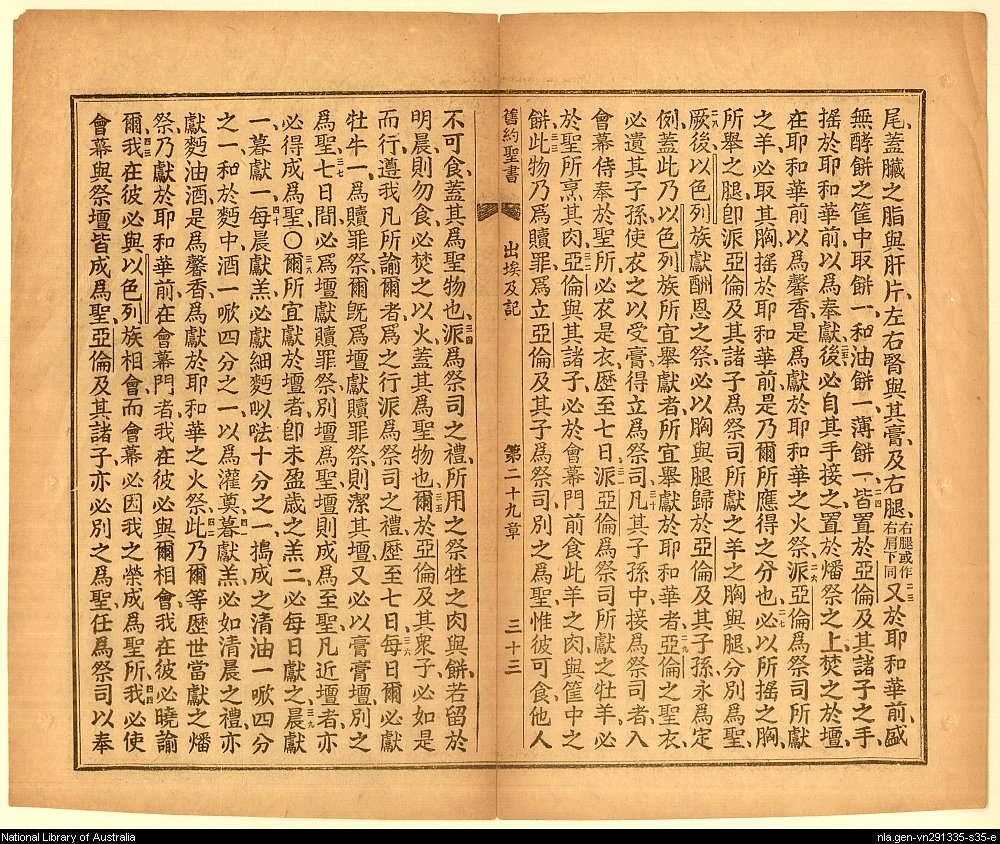 尾蓋臟之脂與肝片左右腎與其膏及右腿右腿或作右肩下同二三又於耶和華前盛
無酵餅之筐中取餅一和油餅一薄餅一二四皆置於亞倫及其諸子之手
搖於耶和華前以爲奉獻二五後必自其手接之置於燔祭之上焚之於壇
在耶和華前以爲馨香是爲獻於耶和華之火祭二六派亞倫爲祭司所獻
之羊必取其胸搖於耶和華前是乃爾所應得之分也二七必以所搖之胸
所舉之腿卽派亞倫及其諸子爲祭司所獻之羊之胸與腿分別爲聖
二八厥後以色列族獻酬恩之祭必以胸與腿歸於亞倫及其子孫永爲定
例蓋此乃以色列族所宜舉獻者所宜舉獻於耶和華者二九亞倫之聖衣
必遺其子孫使衣之以受膏得立爲祭司三十凡其子孫中接爲祭司者入
會幕侍奉於聖所必衣是衣歷至七日三一派亞倫爲祭司所獻之牡羊必
於聖所烹其肉三二亞倫與其諸子必於會幕門前食此羊之肉與筐中之
餅三三此物乃爲贖罪爲立亞倫及其子爲祭司別之爲聖惟彼可食他人
舊約聖書 出埃及記 第二十九章 三十三
不可食蓋其爲聖物也三四派爲祭司之禮所用之祭牲之肉與餅若留於
明晨則勿食必焚之以火蓋其爲聖物也三五爾於亞倫及其衆子必如是
而行遵我凡所諭爾者爲之行派爲祭司之禮歷至七日三六每日爾必獻
牡牛一爲贖罪祭爾旣爲壇獻贖罪祭則潔其壇又必以膏膏壇別之
爲聖三七七日間必爲壇獻贖罪祭別壇爲聖壇則成爲至聖凡近壇者亦
必得成爲聖〇三八爾所宜獻於壇者卽未盈歲之羔二必每日獻之三九晨獻
一暮獻一四十每晨獻羔必獻細麪㕽呿十分之一搗成之清油一㕭四分
之一和於麪中酒一㕭四分之一以爲灌奠四一暮獻羔必如清晨之禮亦
獻麪油酒是爲馨香爲獻於耶和華之火祭四二此乃爾等歷世當獻之燔
祭乃獻於耶和華前在會幕門者我在彼必與爾相會我在彼必曉諭
爾四三我在彼必與以色列族相會而會幕必因我之榮成爲聖所四四我必使
會幕與祭壇皆成爲聖亞倫及其諸子亦必別之爲聖任爲祭司以奉
National Library of Australia
nla.gen-vn291335-s35-e